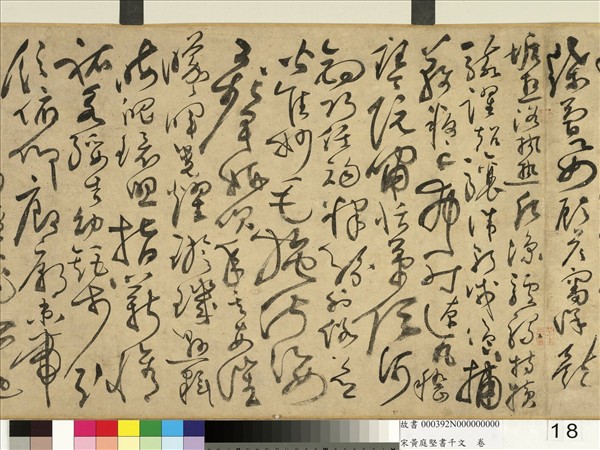 牒簡要顧答審詳骸
垢想浴執熱願涼驢騾特犢
駭躍超驤誅斬賊盜捕
獲叛亡布射遼丸嵇
琴阮嘯恬筆倫紙
鈞巧任釣釋紛利俗並
皆佳妙毛施淑姿
工顰妍笑年矢每催
曦暉晃耀璇璣懸斡
晦魄環照指薪修
祜永綏吉劭矩步引
領俯仰廊廟束帶
故書 000392N000000000
宋黃庭堅書千文 卷
18